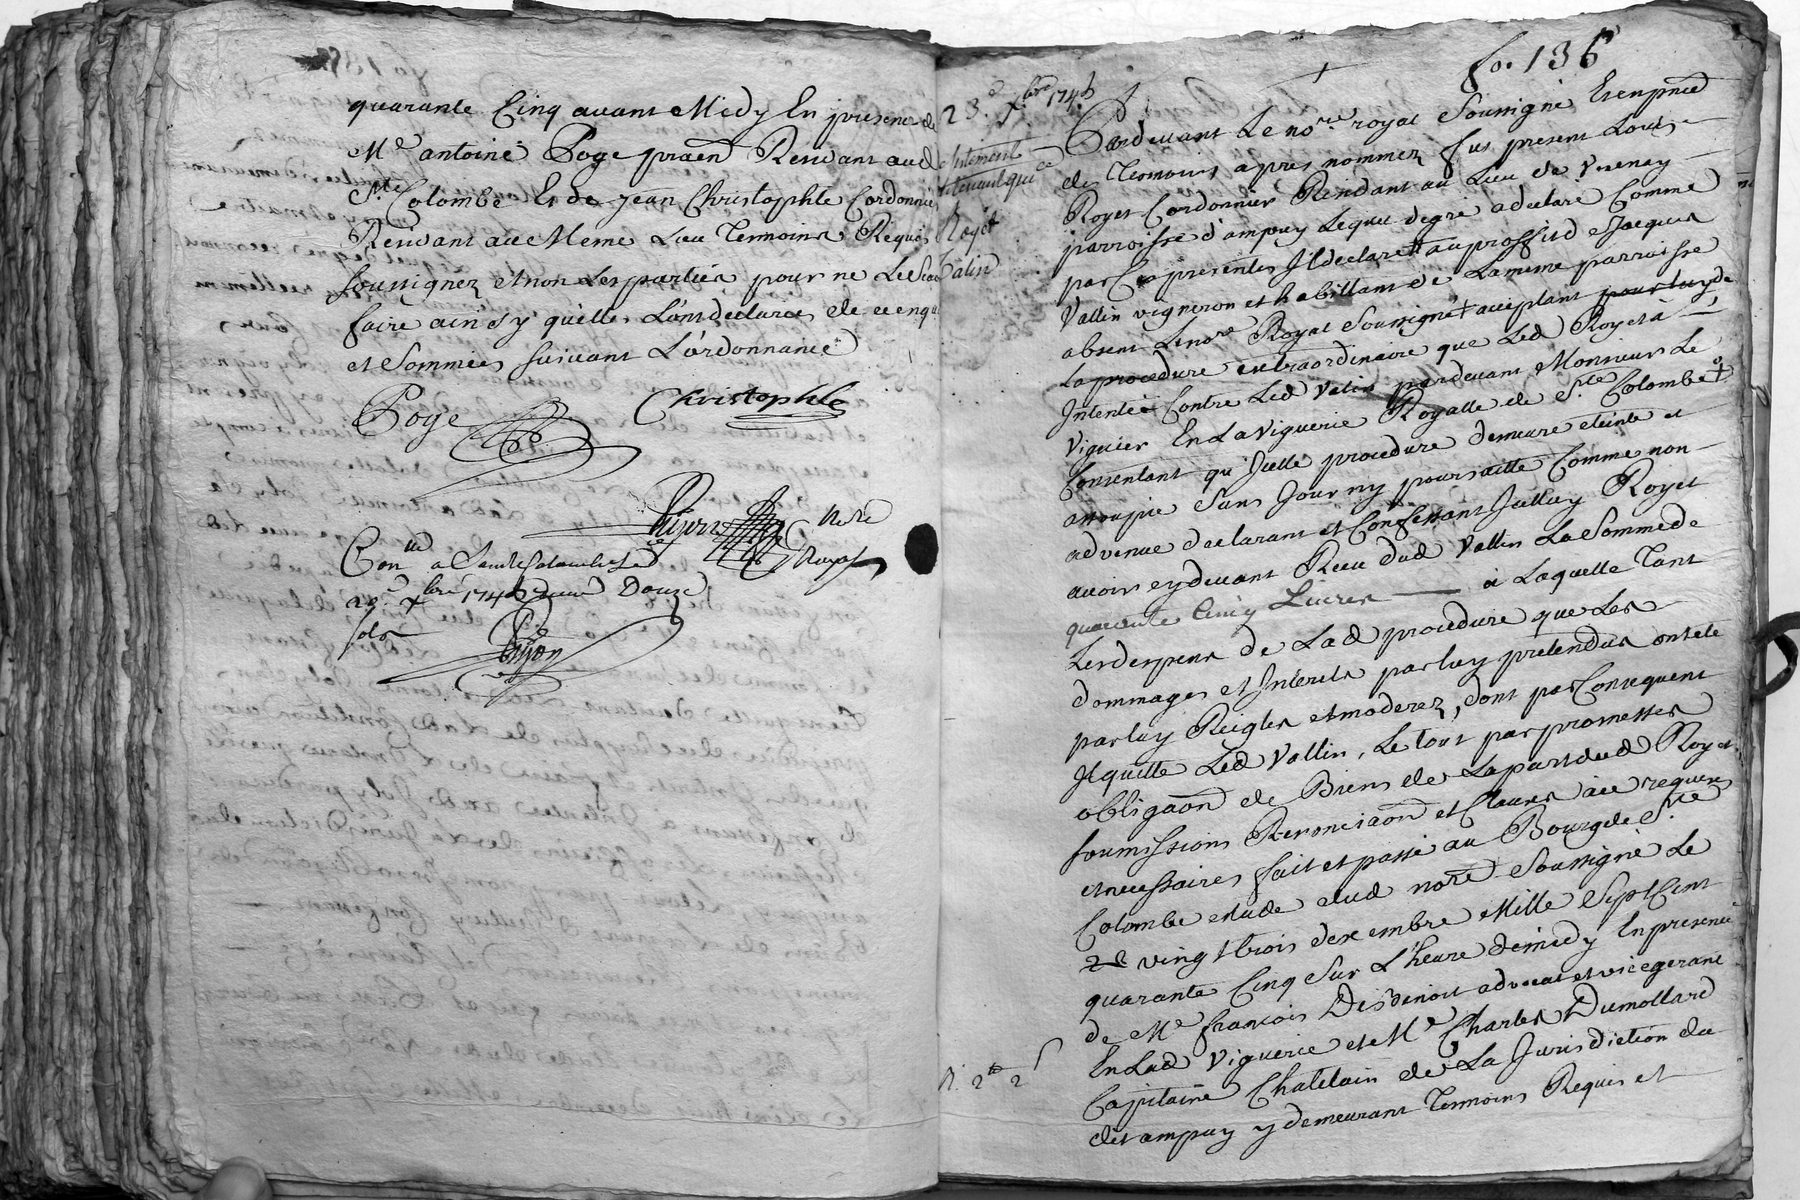 quarante Cinq avant Midy En presence de
Me antoine Poge praen Residant aud
Ste Colombe Et de Jean Christophle Cordonnier
Residant au Meme Lieu Temoins Requis
soussignez et non Les parties pour ne Le Scavoir
faire ainsy quelles L'ont declarées de ce enqui
et Sommées suivant L'ordonnance
Poge Christophle
Pijon Nore
Royal
Con lle a Sainte Colombe Le
Xbre 1745 Douze
sols
Pijon
fo. 135
23e Xbre 1745
quice
Royet
Valin
Pardevant Le nore royal Soussigné Et en pnce
des Temoins apres nommez fut present Louis
Royet Cordonnier Residant au Lieu de Verenay
parroisse d'ampuy Lequel de gré a declaré Comme
par Ces presentes Il declare au proffit de Jacques
Vallin vigneron et habittant de La meme parroisse
absent Le nore Royal Soussigné acceptant pour luy de
La procedure extraordinaire que Led Royet a
Intentée Contre Led Valin pardevant Monsieur Le
Viguier En La Viguerie Royalle de Ste Colombe
Consentant qu'Icelle procedure demeure eteinte et
assoupie Sans Jour ny poursuitte Comme non
advenue declarant et Confessant Icelluy Royet
avoir cy devant Receu dud Vallin La Somme de
quarente Cinq Livres a Laquelle Tant
Les depens de Lad procedure que Les
dommages et Interets par luy pretendus ont ete
par luy Reigles et moderez, dont par Consequent
Il quitte Led Vallin, Le tout par promesses
obligaon de Biens de La part dud Royet
soumissions Renonciaon et Clauses a ce requises
et necessaires fait et passé au Bourg de Ste
Colombe etude dud nore Soussigné Le
vingt trois dexembre Mille Sept Cent
quarante Cinq Sur L'heure de midy En presence
de Me francois Disdenoit advocat et vicegerant
En Lad Viguerie et Me Charles Dumollard
Capitaine Chatelain de La Jurisdiction du
dit ampuy y demeurant Temoins Requis et